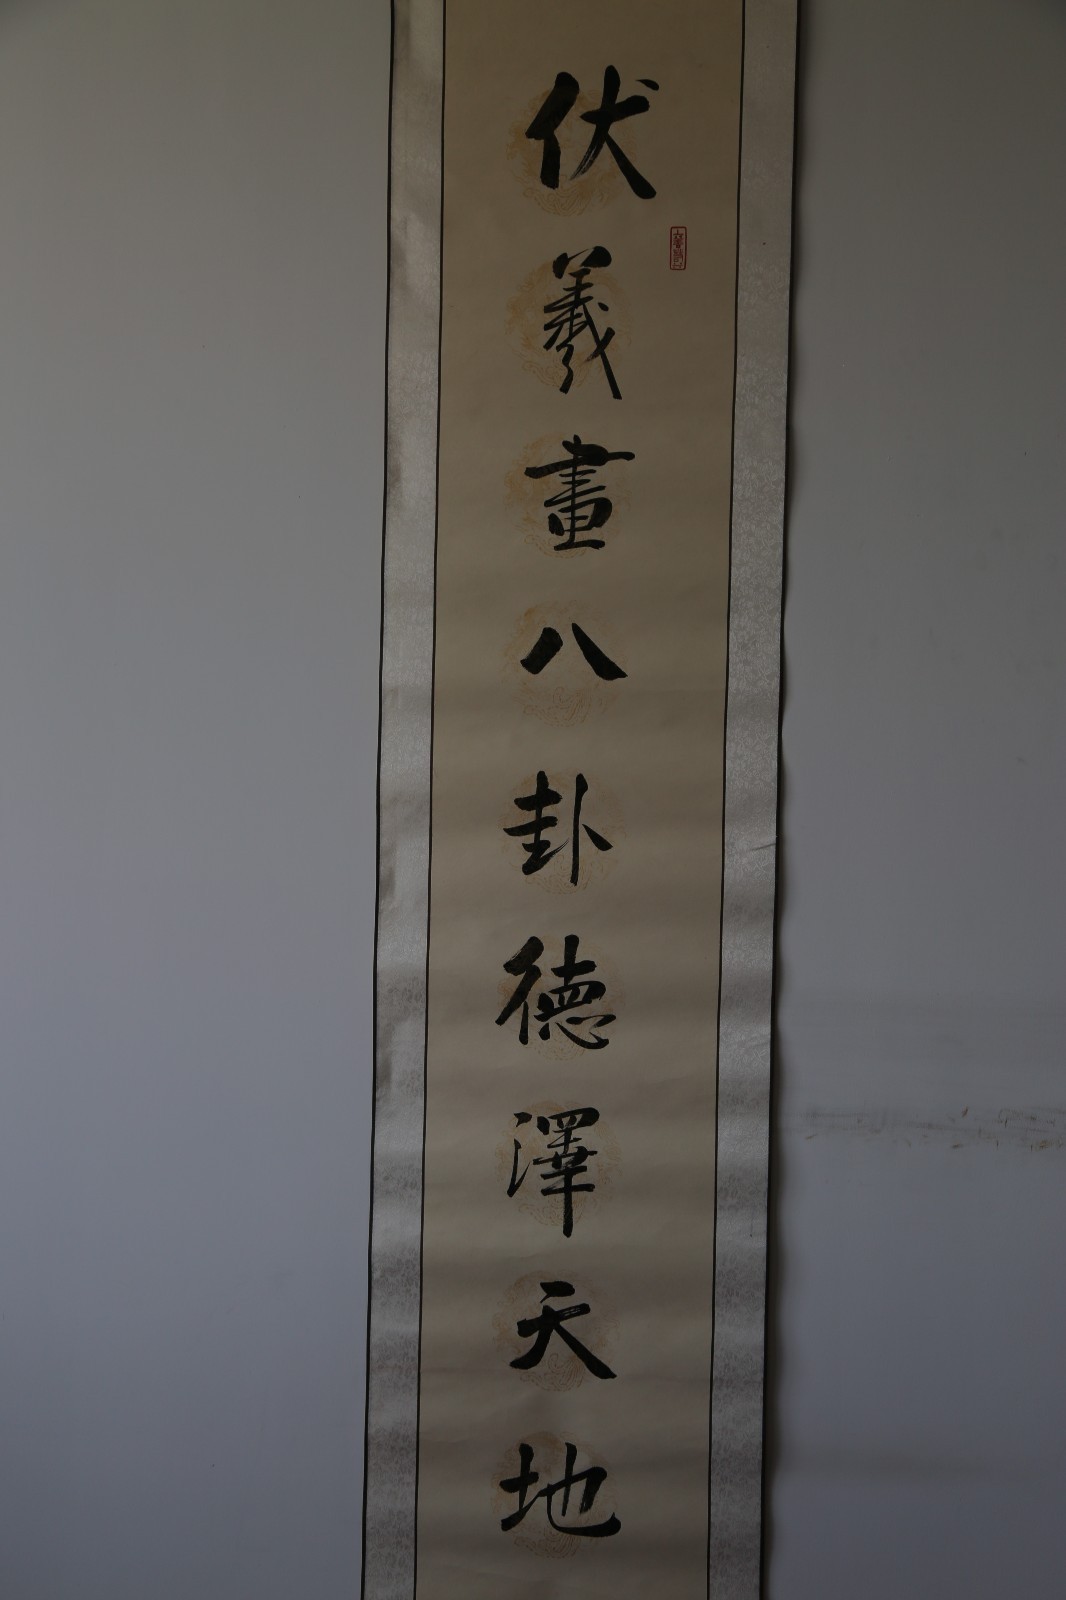 伏羲畫八卦德澤天地